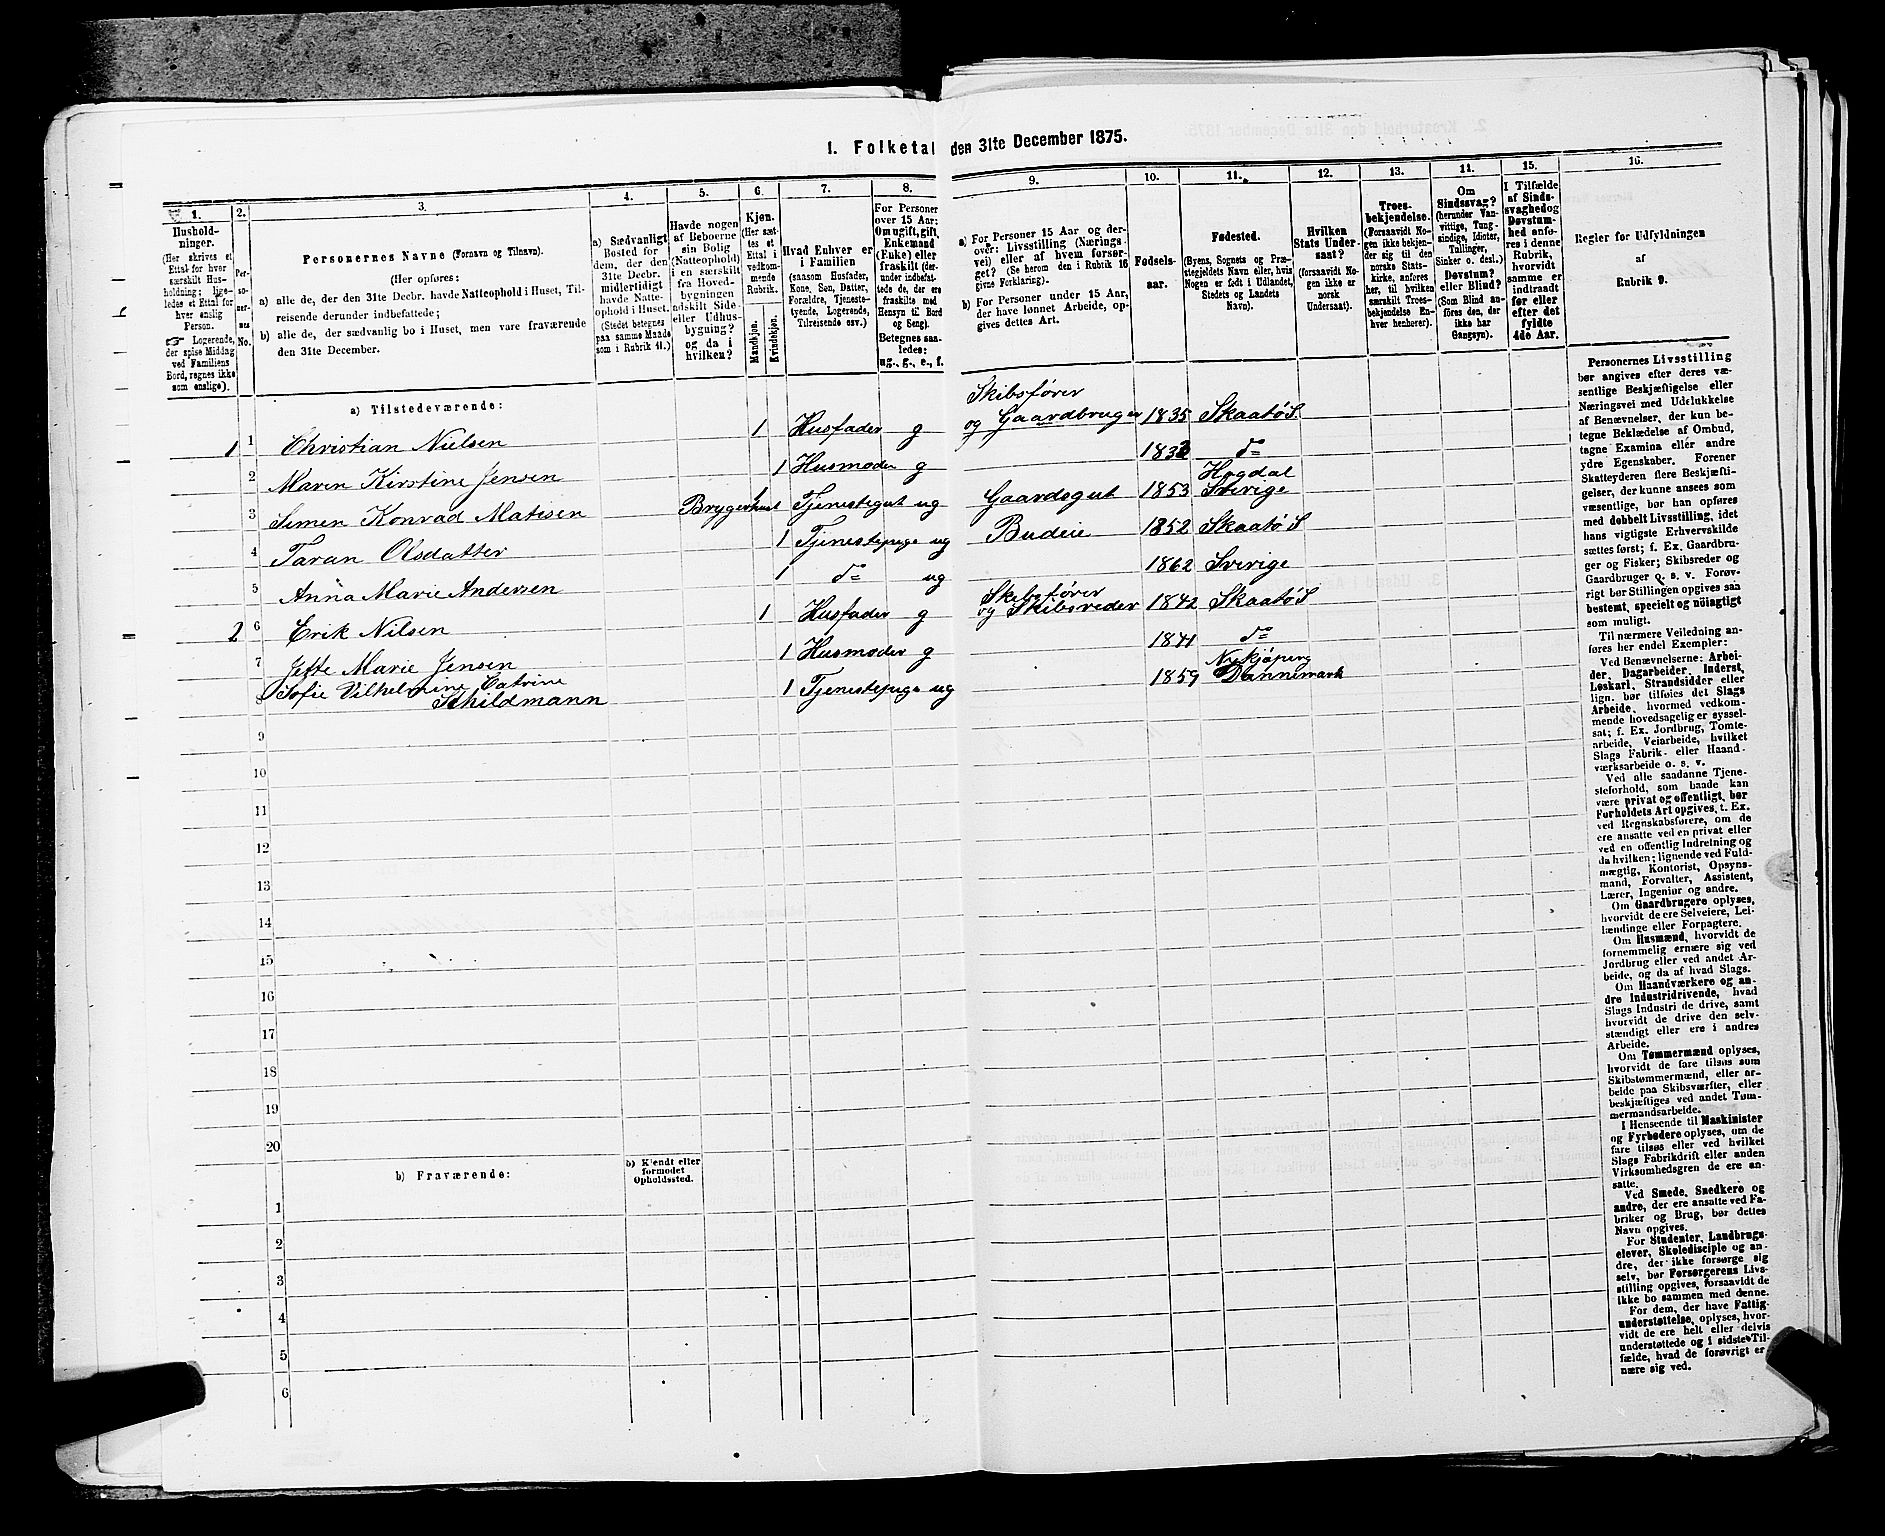 1. Folketal den 31te December 1875.
1.
Husholdninger.
(Her skrives et
Ettal for hver
særskilt Husholdning; ligeledes
et Ettal for
hver enslig
Person.
☞ Logerende,
der spise Middag
ved Familiens
Bord, regnes ikke
som enslige).
2.
Personernes
No.
3.
Personernes Navne (Fornavn og Tilnavn).
(Her opføres:
a) alle de, der den 31te Decbr. havde Natteophold i Huset, Tilreisende derunder indbefattede;
b) alle de, der sædvanlig bo i Huset, men vare fraværende
den 31te December.
4.
a) Sædvanligt
Bosted for
dem, der den
31te Decbr.
midlertidigt
havde Natteophold i Huset.
(Stedet betegnes
paa samme Maade
som i Rubrik 11.)
5.
Havde nogen
af Beboerne
sin Bolig
(Natteophold)
i en særskilt
fra Hovedbygningen
adskilt Side-
eller Udhusbygning?
og da i
hvilken?
6.
Kjøn.
(Her sættes et
Ettal i
vedkommende
Rubrik.
Mandkjøn.
Kvindekjøn.
7.
Hvad Enhver er
i Familien
(saasom Husfader,
Kone, Søn, Datter,
Forældre, Tjenestetyende, Logerende,
Tilreisende osv.)
8.
For Personer
over 15 Aar:
Om ugift, gift,
Enkemand
(Enke) eller
fraskilt (derunder indbefattede de, der ere
fraskilte med
Hensyn til Bord
og Seng).
Betegnes saaledes:
ug., g., e., f.
9.
a) For Personer 15 Aar og derover: Livsstilling (Næringsvei) eller af hvem forsørget? (Se herom den i Rubrik 16
givne Forklaring).
b) For Personer under 15 Aar,
der have lønnet Arbeide, opgives dettes Art.
10.
Fødselsaar.
11.
Fødested.
(Byens, Sognets og Præstegjeldets Navn eller, hvis
Nogen er født i Udlandet,
Stedets og Landets
Navn).
12.
Hvilken
Stats Undersaat?
(forsaavidt Nogen ikke er
norsk
Undersaat).
13.
Troesbekjendelse.
(Forsaavidt Nogen ikke bekjender sig til den
norske Statskirke, anføres
her, til hvilken
særskilt Troesbekjendelse Enhver henhører).
14.
Om
Sindssvag?
(herunder Vanvittige, Tungsindige, Idioter,
Tullinger,
Sinker o. desl.)
Døvstum?
eller Blind?
(Som Blind anføres den, der
ikke har
Gangsyn).
15.
I Tilfælde
af Sindssvaghed og
Døvstumhed anføres i denne
Rubrik,
hvorvidt
samme er
indtraadt
før eller
efter det
fyldte
4de Aar.
16.
Regler for Udfyldningen
af
Rubrik 9.
a) Tilstedeværende:
1 1 Christian Nielsen 1 Husfader g Skibsfører
og Gaardbruger 1835 Skaatø S.
2 Maren Kirstine Jensen 1 Husmoder g 1832 do
3 Simen Konrad Matisen Brygerhuset 1 Tjenestegut ug Gaardsgut 1853 Hogdal
Sverige
4 Taran Olsdatter 1 Tjenestepige ug Budeie 1852 Skaatø S
5 Anna Marie Andersen 1 do ug 1862 Sverige
2 6 Erik Nilsen 1 Husfader g Skibsfører
og Skibsreder 1842 Skaatø S
7 Jette Marie Jensen 1 Husmoder g 1841 do
8 Sofie Vilhelmine Catrine
Schildmann 1 Tjenestepige ug 1859 Nykjøping
Dannemark
9
10
11
12
13
14
15
16
17
18
19
20
b) Fraværende:
b) Kjendt eller
formodet
Opholdssted.
1
2
3
4
5
6
Personernes Livsstilling
bør angives efter deres væsentlige Beskjæftigelse eller
Næringsvei med Udelukkelse
af Benævnelser, der kun betegne Beklædelse af Ombud,
tagne Examina eller andre
ydre Egenskaber. Forener
Skatteyderen flere Beskjæftigelser, der kunne ansees som
væsentlige, bør han opføres
med dobbelt Livsstilling, idet
hans vigtigste Erhvervskilde
sættes først; f. Ex. Gaardbruger og Fisker; Skibsreder og
Gaardbruger o. s. v. Forøvrigt bør Stillingen opgives saa
bestemt, specielt og nöiagtigt
som muligt.
Til nærmere Veiledning anføres her endel Exempler:
Ved Benævnelserne: Arbeider, Dagarbeider, Inderst,
Løskarl, Strandsidder eller
lign. bør tilføies det Slags
Arbeide, hvormed vedkommende hovedsagelig er sysselsat; f. Ex. Jordbrug, Tomtearbeide, Veiarbeide, hvilket
Slags Fabrik- eller Haandværksarbeide o. s. v.
Ved alle saadanne Tjenesteforhold, som baade kan
være privat og offentligt, bør
Forholdets Art opgives, t. Ex.
ved Regnskabsførere, om de
ere ansatte ved en privat eller
ved en offentlig Indretning og
da hvilken; lignende ved Fuldmægtig, Kontorist, Opsynsmand, Forvalter, Assistent,
Lærer, Ingeniør og andre.
Om Gaardbrugere oplyses,
hvorvidt de ere Selveiere, Leilændinge eller Forpagtere.
Om Husmænd, hvorvidt de
fornemmelig ernære sig ved
Jordbrug eller ved andet Arbeide, og da af hvad Slags.
Om Haandværkere og andre Industridrivende, hvad
Slags Industri de drive, samt
hvorvidt de drive den selvstændigt eller ere i andres
Arbeide.
Om Tømmermænd oplyses,
hvorvidt de fare tilsøs som
Skibstømmermænd, eller arbeide paa Skibsværfter, eller
beskjæftiges ved andet Tømmermandsarbeide.
I Henseende til Maskinister
og Fyrbødere oplyses, om de
fare tilsøs eller ved hvilket
Slags Fabrikdrift eller anden
Virksomhedsgren de ere ansatte.
Ved Smede, Snedkere og
andre, der ere ansatte ved Fabriker og Brug, bør dettes
Navn opgives.
For Studenter, Landbrugselever, Skoledisciple og andre, der ikke forsørge sig
selv, bør Forsørgerens Livsstilling opgives, forsaavidt de
ikke bo sammen med denne.
For dem, der have Fattigunderstøttelse, oplyses, hvorvidt de ere helt eller delvis
understøttede og i sidste Tilfælde, hvad de forøvrigt ernære sig ved.